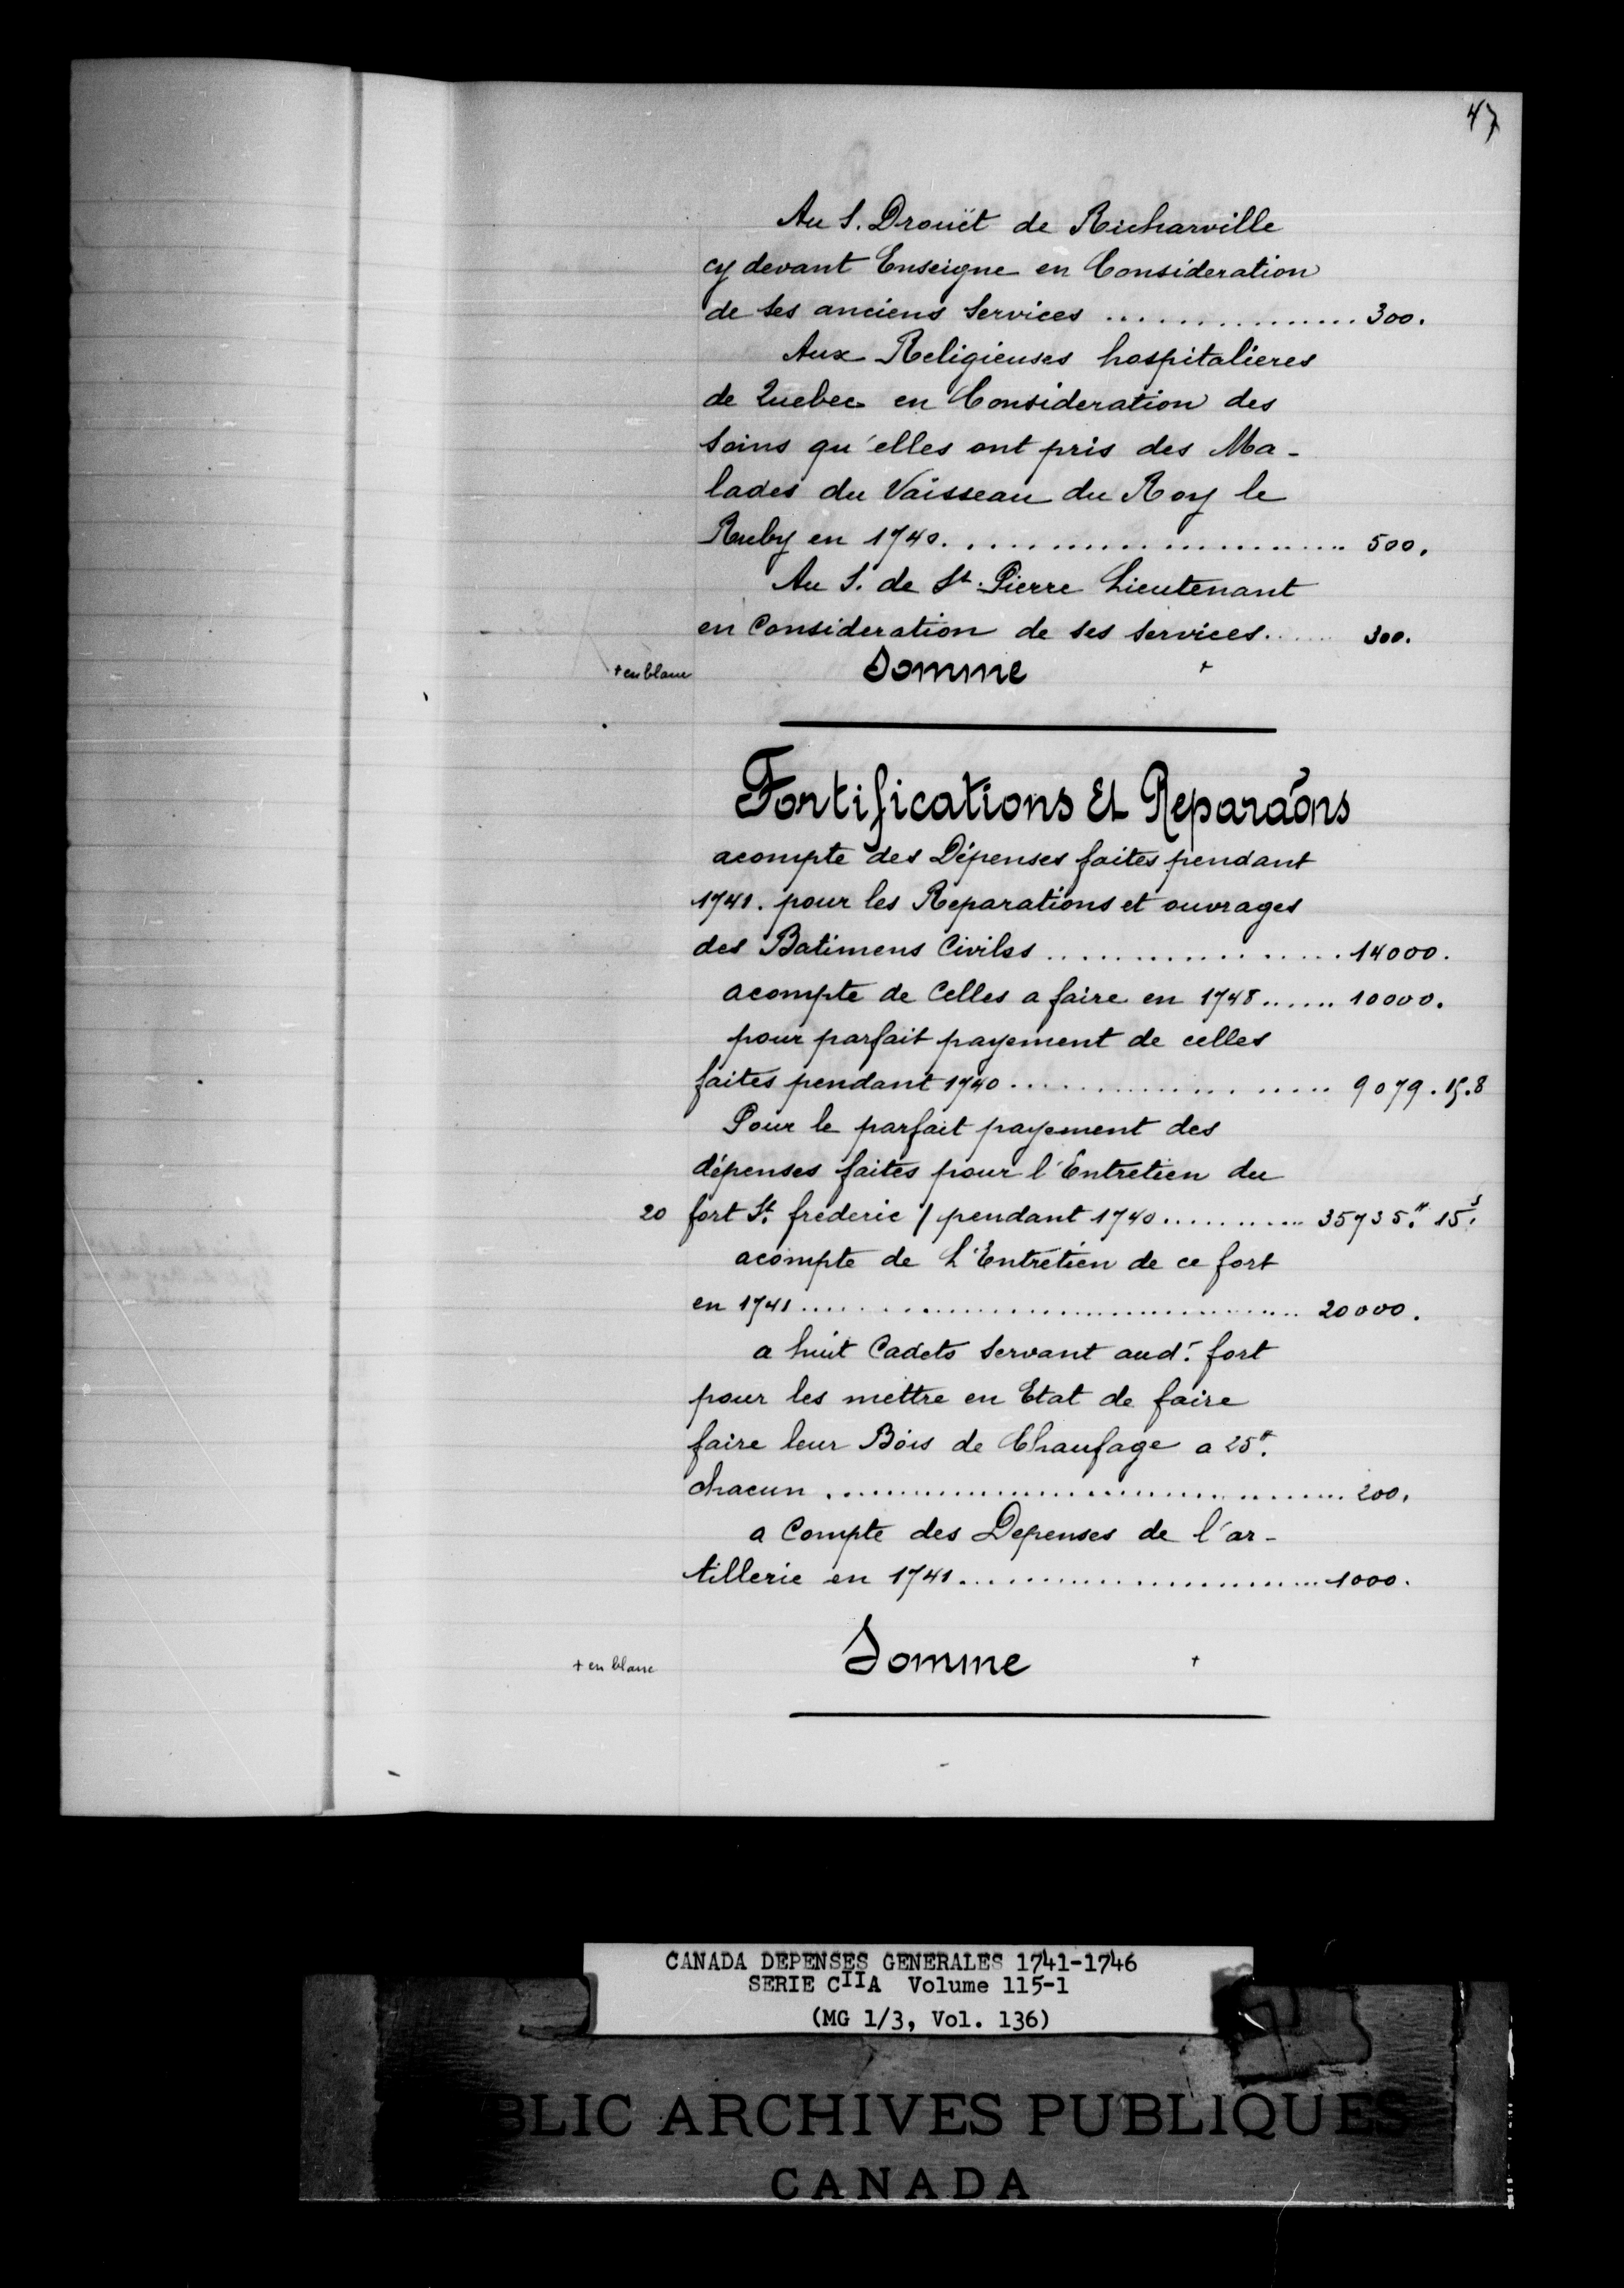 47
Au S. Drouët de Richarville
cy devant Enseigne en Consideration
de ses anciens services ................ 300.
Aux Religieuses hospitalieres
de Quebec en Consideration des
soins qu'elles ont pris des Ma-
lades du Vaisseau du Roy le
Ruby en 1740. ........................ 500.
Au S. de St. Pierre Lieutenant
en Consideration de ses services...... 300.
+ en blanc Somme +
Fortifications Et Reparaõns
acompte des Dépenses faites pendant
1741. pour les Reparations et ouvrages
des Batimens Civilss ................. 14000.
acompte de Celles a faire en 1748...... 10000.
pour parfait payement de celles
faites pendant 1740 ................... 9079. 15. 8
Pour le parfait payement des
dépenses faites pour l'Entretien du
20 fort St. frederic / pendant 1740........... 35735.# 15.s
acompte de L'Entretien de ce fort
en 1741 ................................ 20000.
a huit Cadets servant aud.t fort
pour les mettre en Etat de faire
faire leur Bois de Chaufage a 25#.
chacun ................................ 200.
a Compte des Depenses de l'ar-
tillerie en 1741 ........................ 1000.
+ en blanc Somme +
CANADA DEPENSES GENERALES 1741-1746
SERIE CIIA Volume 115-1
(MG 1/3, Vol. 136)
BLIC ARCHIVES PUBLIQUES
CANADA